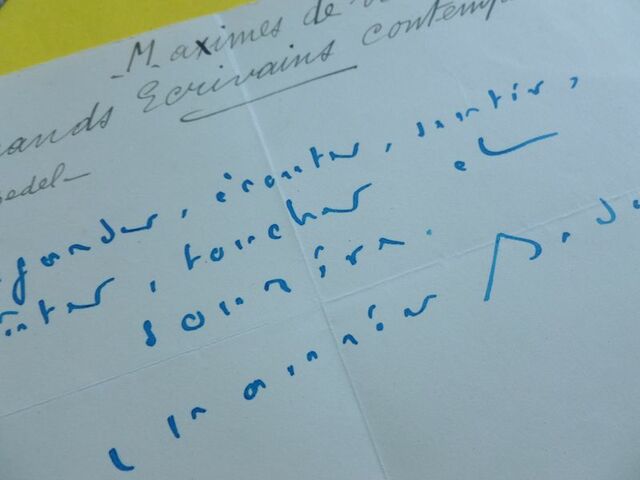 Maximes de v
ands Ecrivains contemp
edel-
garder, écouter, sentir,
ûter, toucher et
sourire.